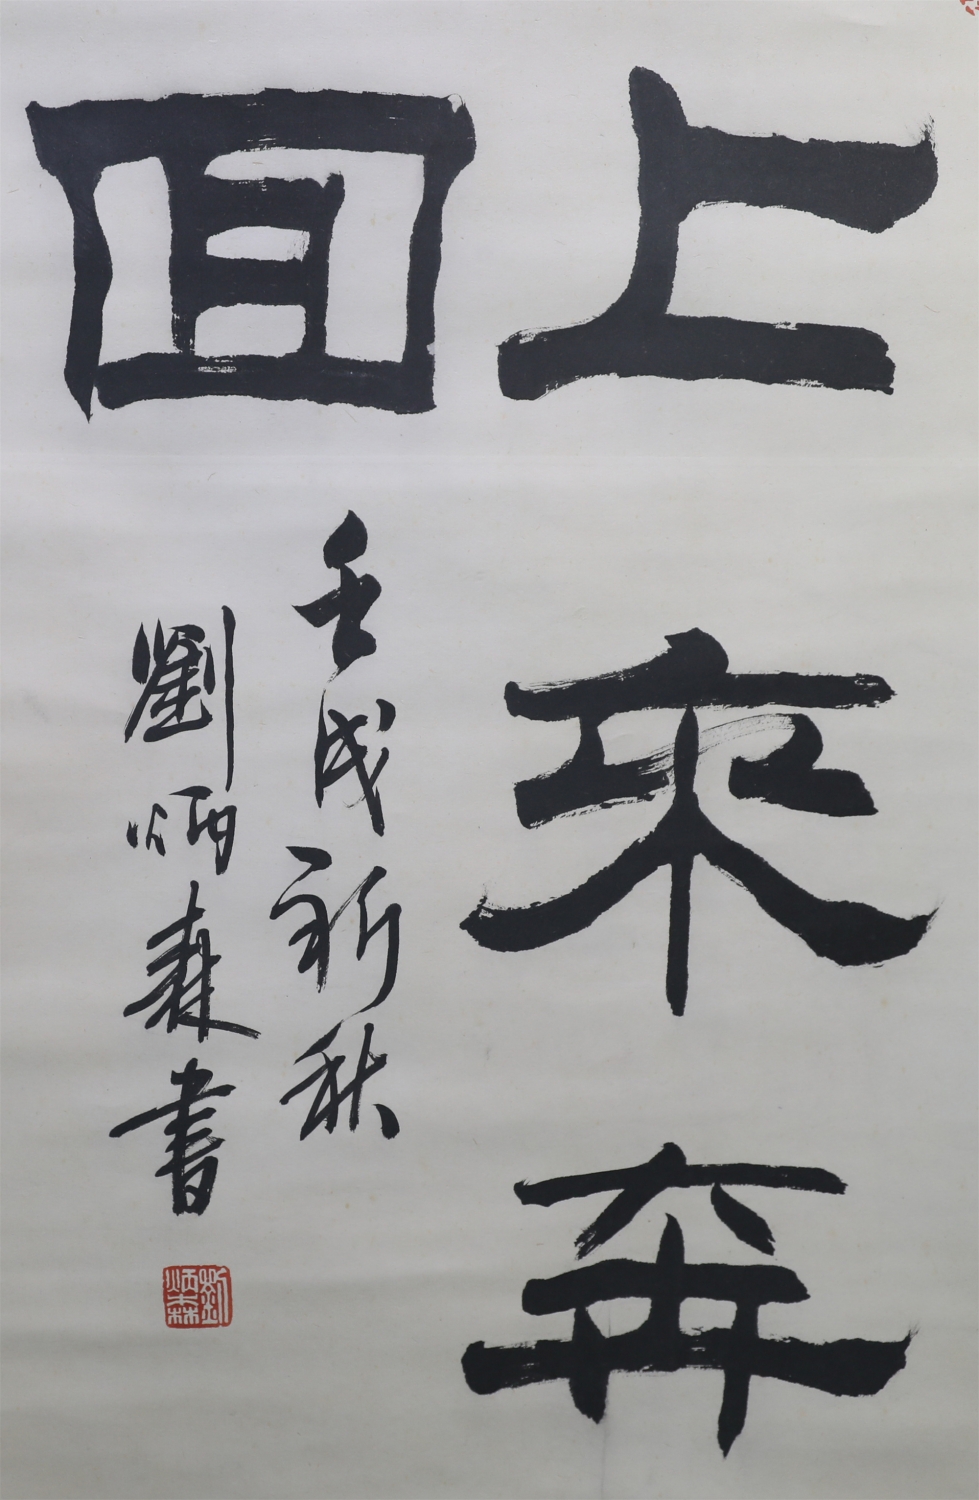 上來奔
回
壬戌新秋
劉炳森書
劉炳森